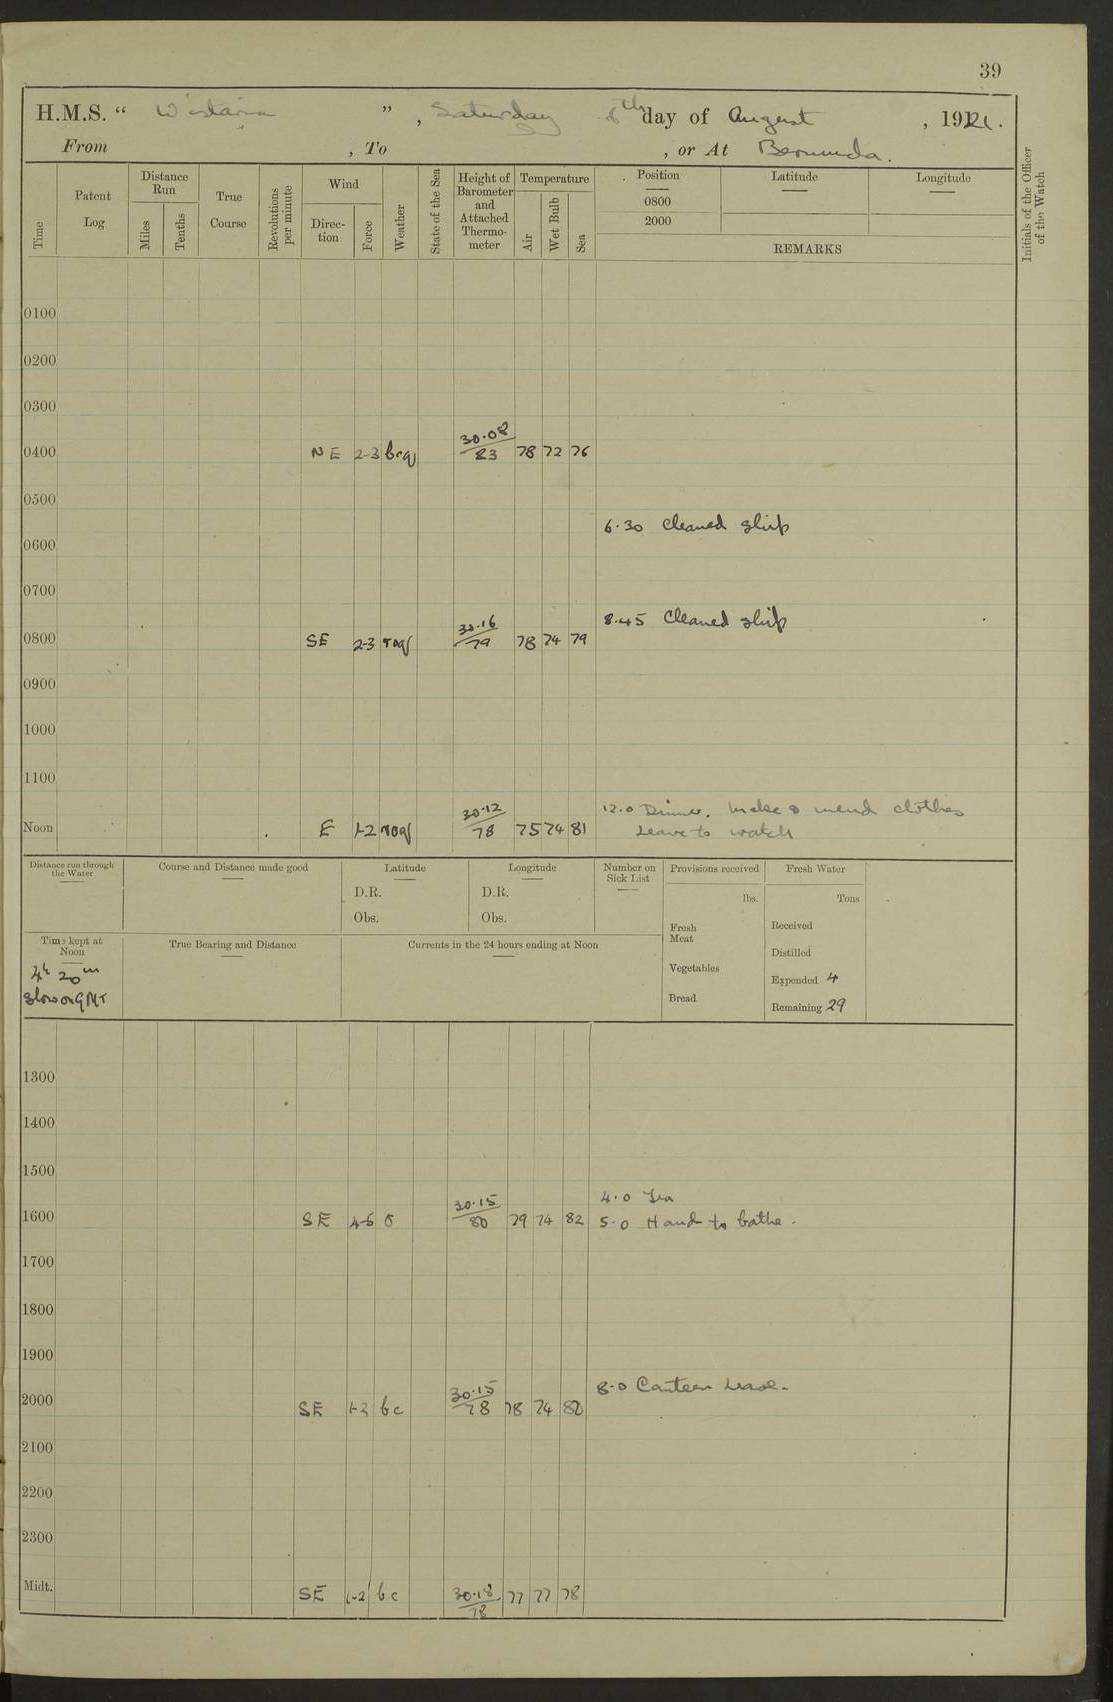 39
H.M.S. “ Wistaria ”, Saturday 6th day of August, 1921.
From , To , or At Bermuda.
Initials of the Officer of the Watch
Time
Patent Log
Distance Run
Miles
Tenths
True Course
Revolutions per minute
Wind
Direction
Force
Weather
State of the Sea
Height of Barometer and Attached Thermometer
Temperature
Air
Wet Bulb
Sea
Position
0800
2000
Latitude
Longitude
REMARKS
0100
0200
0300
0400 NE 2-3 bcq 30.08/83 78 72 76
0500
6.30 Cleaned ship
0600
0700
8.45 Cleaned ship
0800 SE 2-3 30.16/79 78 74 79
0900
1000
1100
12.0 Dinner. Make & mend clothes
Noon E 1-2 30.12/78 75 74 81 Leave to watch
Distance run through the Water
Course and Distance made good
Latitude
D.R.
Obs.
Longitude
D.R.
Obs.
Number on Sick List
Provisions received
lbs.
Fresh Meat
Vegetables
Bread
Fresh Water
Tons
Received
Distilled
Expended 4
Remaining 29
Time kept at Noon
4h 20m
Slow on GMT
True Bearing and Distance
Currents in the 24 hours ending at Noon
1300
1400
1500
4.0 Tea
1600 SE 4-5 o 30.15/80 79 74 82 5.0 Hands to bathe.
1700
1800
1900
8.0 Canteen Leave.
2000 SE 1-2 bc 30.15/78 78 74 82
2100
2200
2300
Midt. SE 1-2 bc 30.18/78 77 77 78